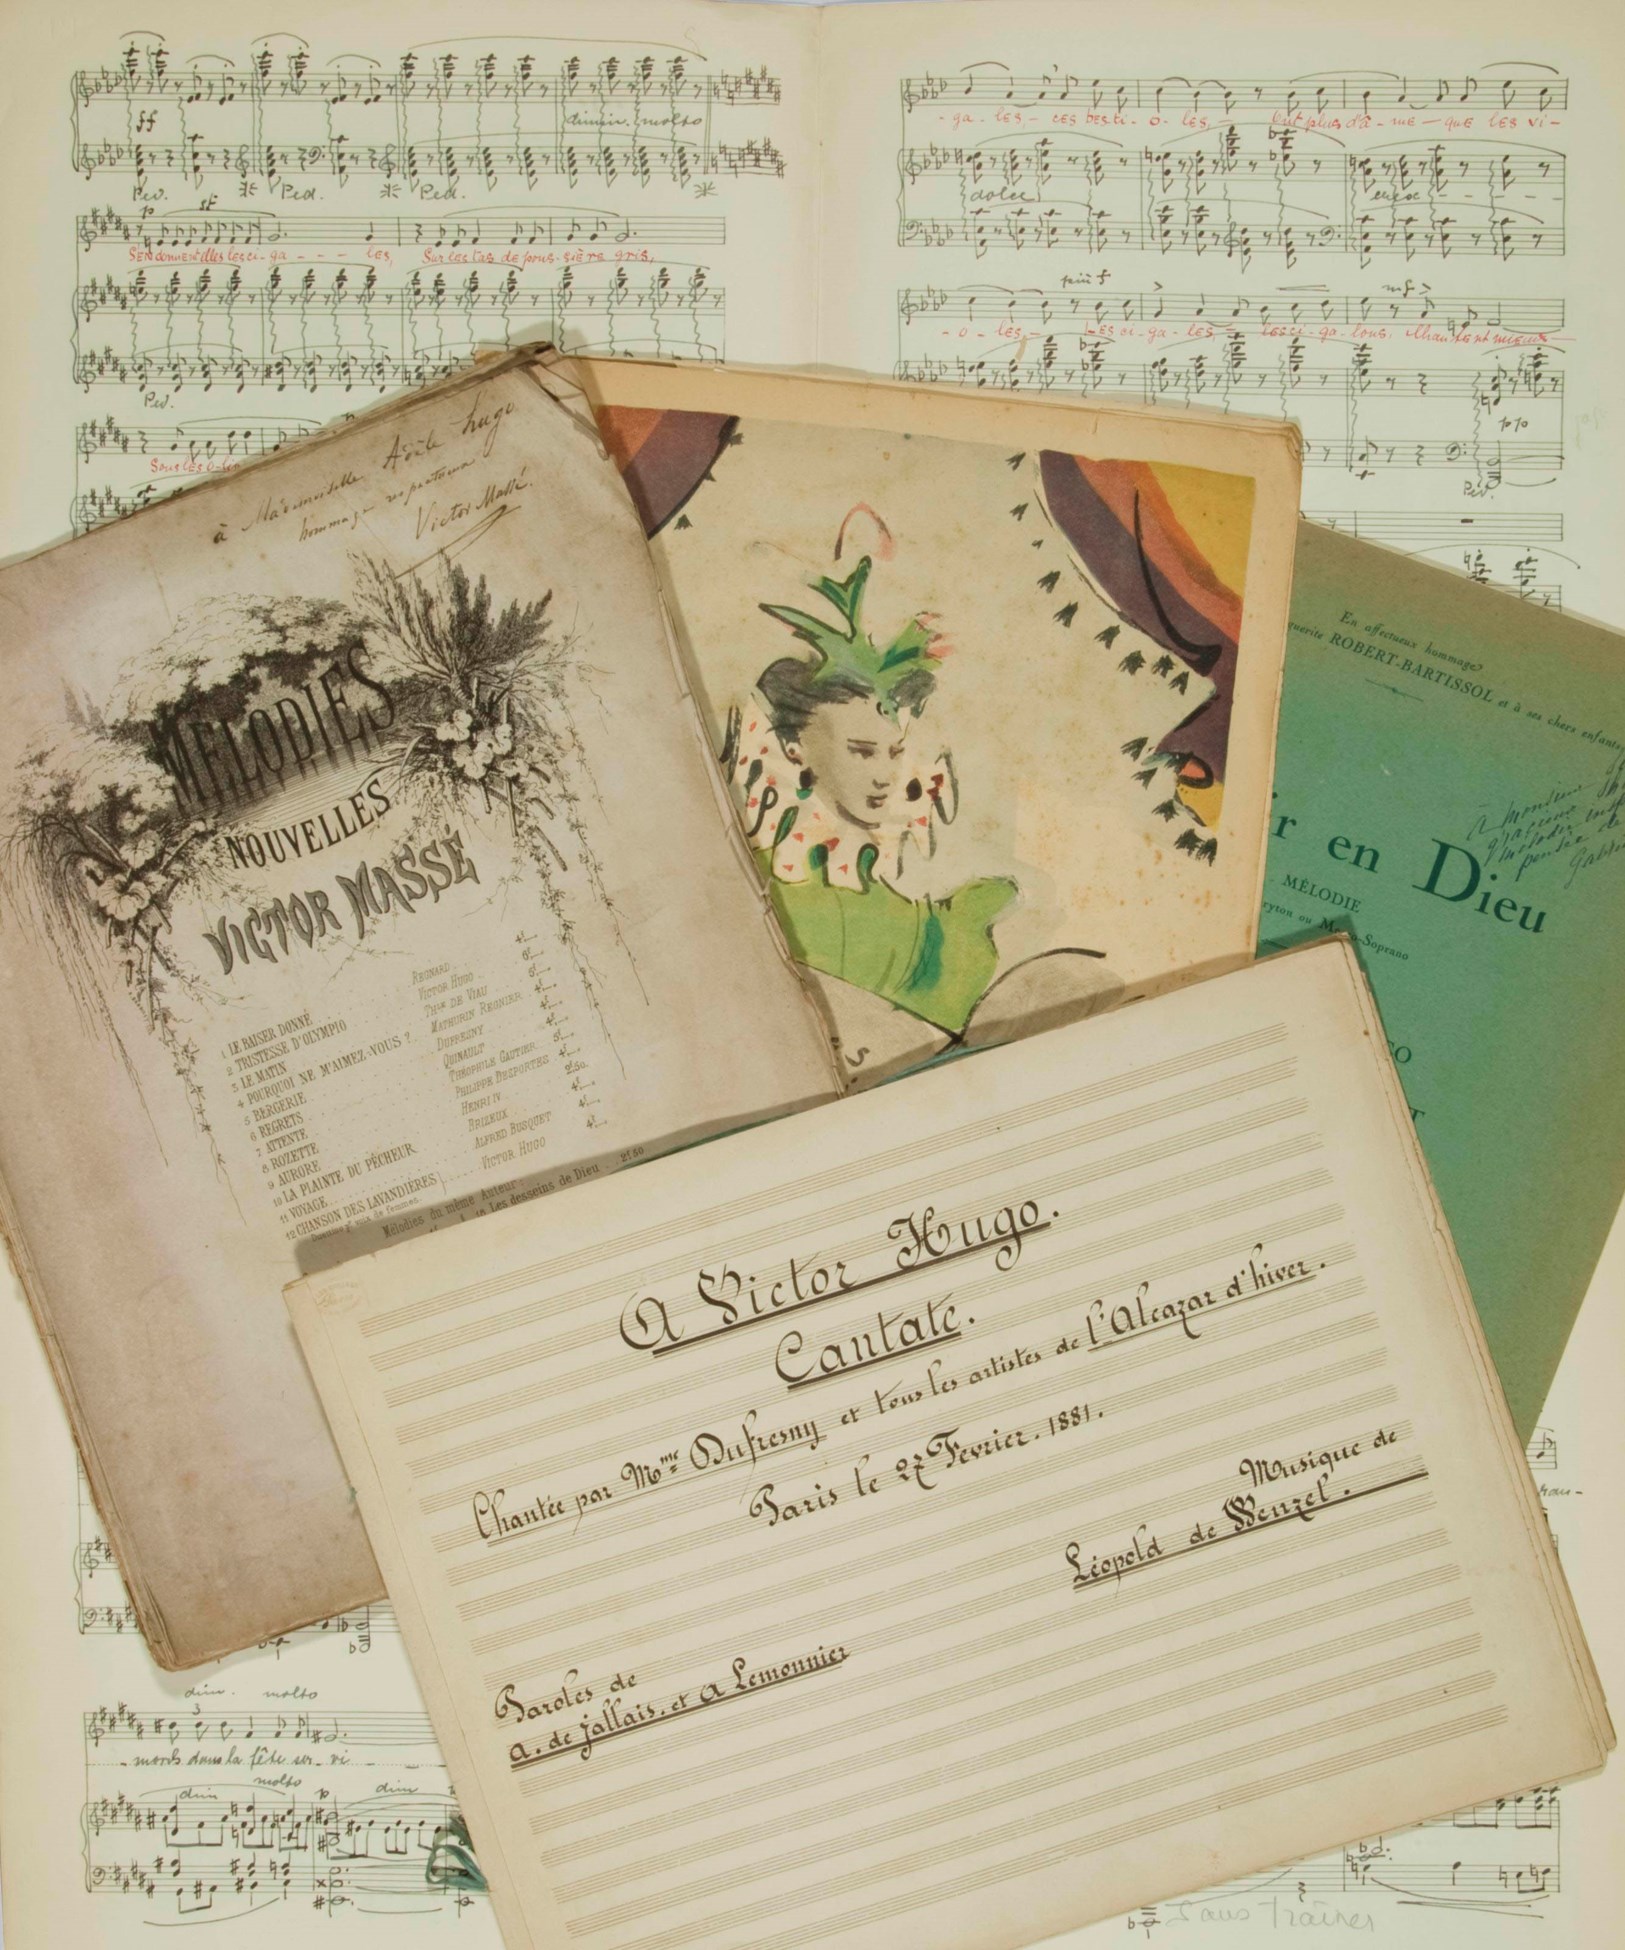 ff
dimin. molto
Ped.
Ped.
Ped.
p
sf
S'en donnent elles les ci-ga - - - les,
Sur les tas de pous-sière gris,
Ped.
Sous les o-li
- ga - les, - ces besti - o - les, -
Ont plus d'â - me - que les vi -
dolce
più f
mf >
- o - les, -
Les ci - ga - les, -
les ci - ga - lons,
Chan-tent mieux -
pp
Ped.
à Mademoiselle Adèle Hugo
hommage respectueux
Victor Massé.
MÉLODIES
NOUVELLES
VICTOR MASSÉ
1 LE BAISER DONNÉ REGNARD 4f
2 TRISTESSE D'OLYMPIO VICTOR HUGO 6f
3 LE MATIN THle DE VIAU 5f
4 POURQUOI NE M'AIMEZ-VOUS ? MATHURIN REGNIER 4f
5 BERGERIE DUFRESNY 4f
6 REGRETS QUINAULT 4f
7 ATTENTE THÉOPHILE GAUTIER 5f
8 ROZETTE PHILIPPE DESPORTES 4f
9 AURORE HENRI IV 2f50
10 LA PLAINTE DU PÊCHEUR BRIZEUX 4f
11 VOYAGE ALFRED BUSQUET 4f
12 CHANSON DES LAVANDIÈRES VICTOR HUGO 4f
Mélodies du même Auteur
Les desseins de Dieu 2f50
En affectueux hommage
ROBERT-BARTISSOL et à ses chers enfants
à monsieur
en Dieu
MÉLODIE
ou Mezzo-Soprano
A Victor Hugo.
Cantate.
Chantée par Mme Dufresny et tous les artistes de l'Alcazar d'hiver.
Paris le 27 Fevrier. 1881.
Musique de
Léopold de Wenzel.
Paroles de
A. de Jallais. et A Lemonnier
dim. molto
3
- mords dans la fête ser - vi
dim molto dim
Sans traîner